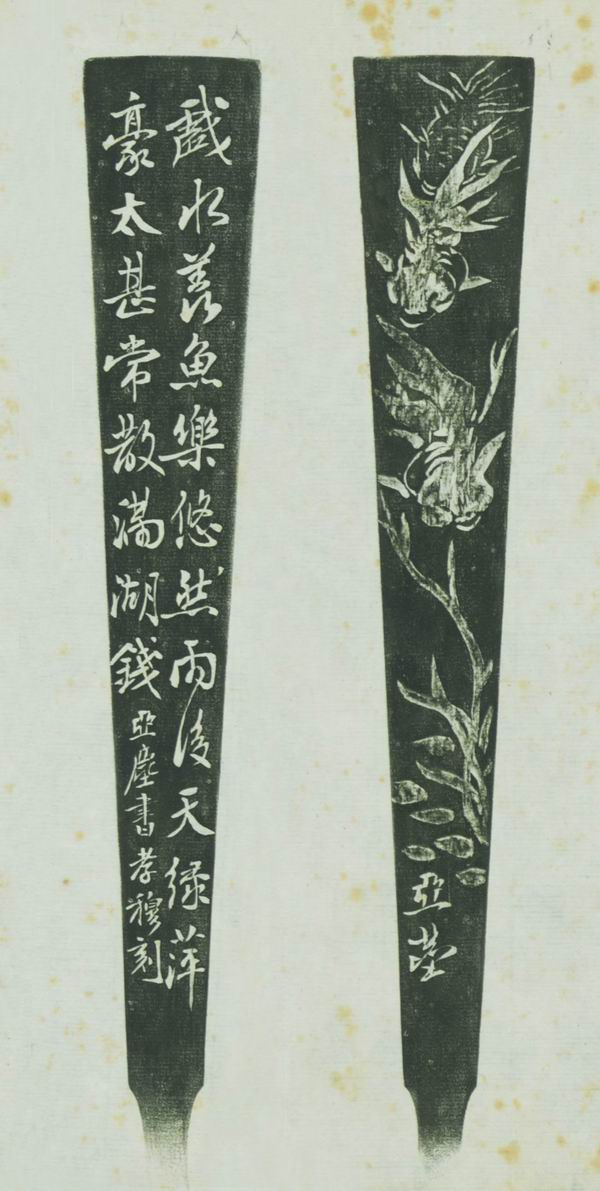 戲水羨魚樂悠然雨後天綠萍
豪太甚常散滿湖錢亞塵書孝穆刻
亞塵